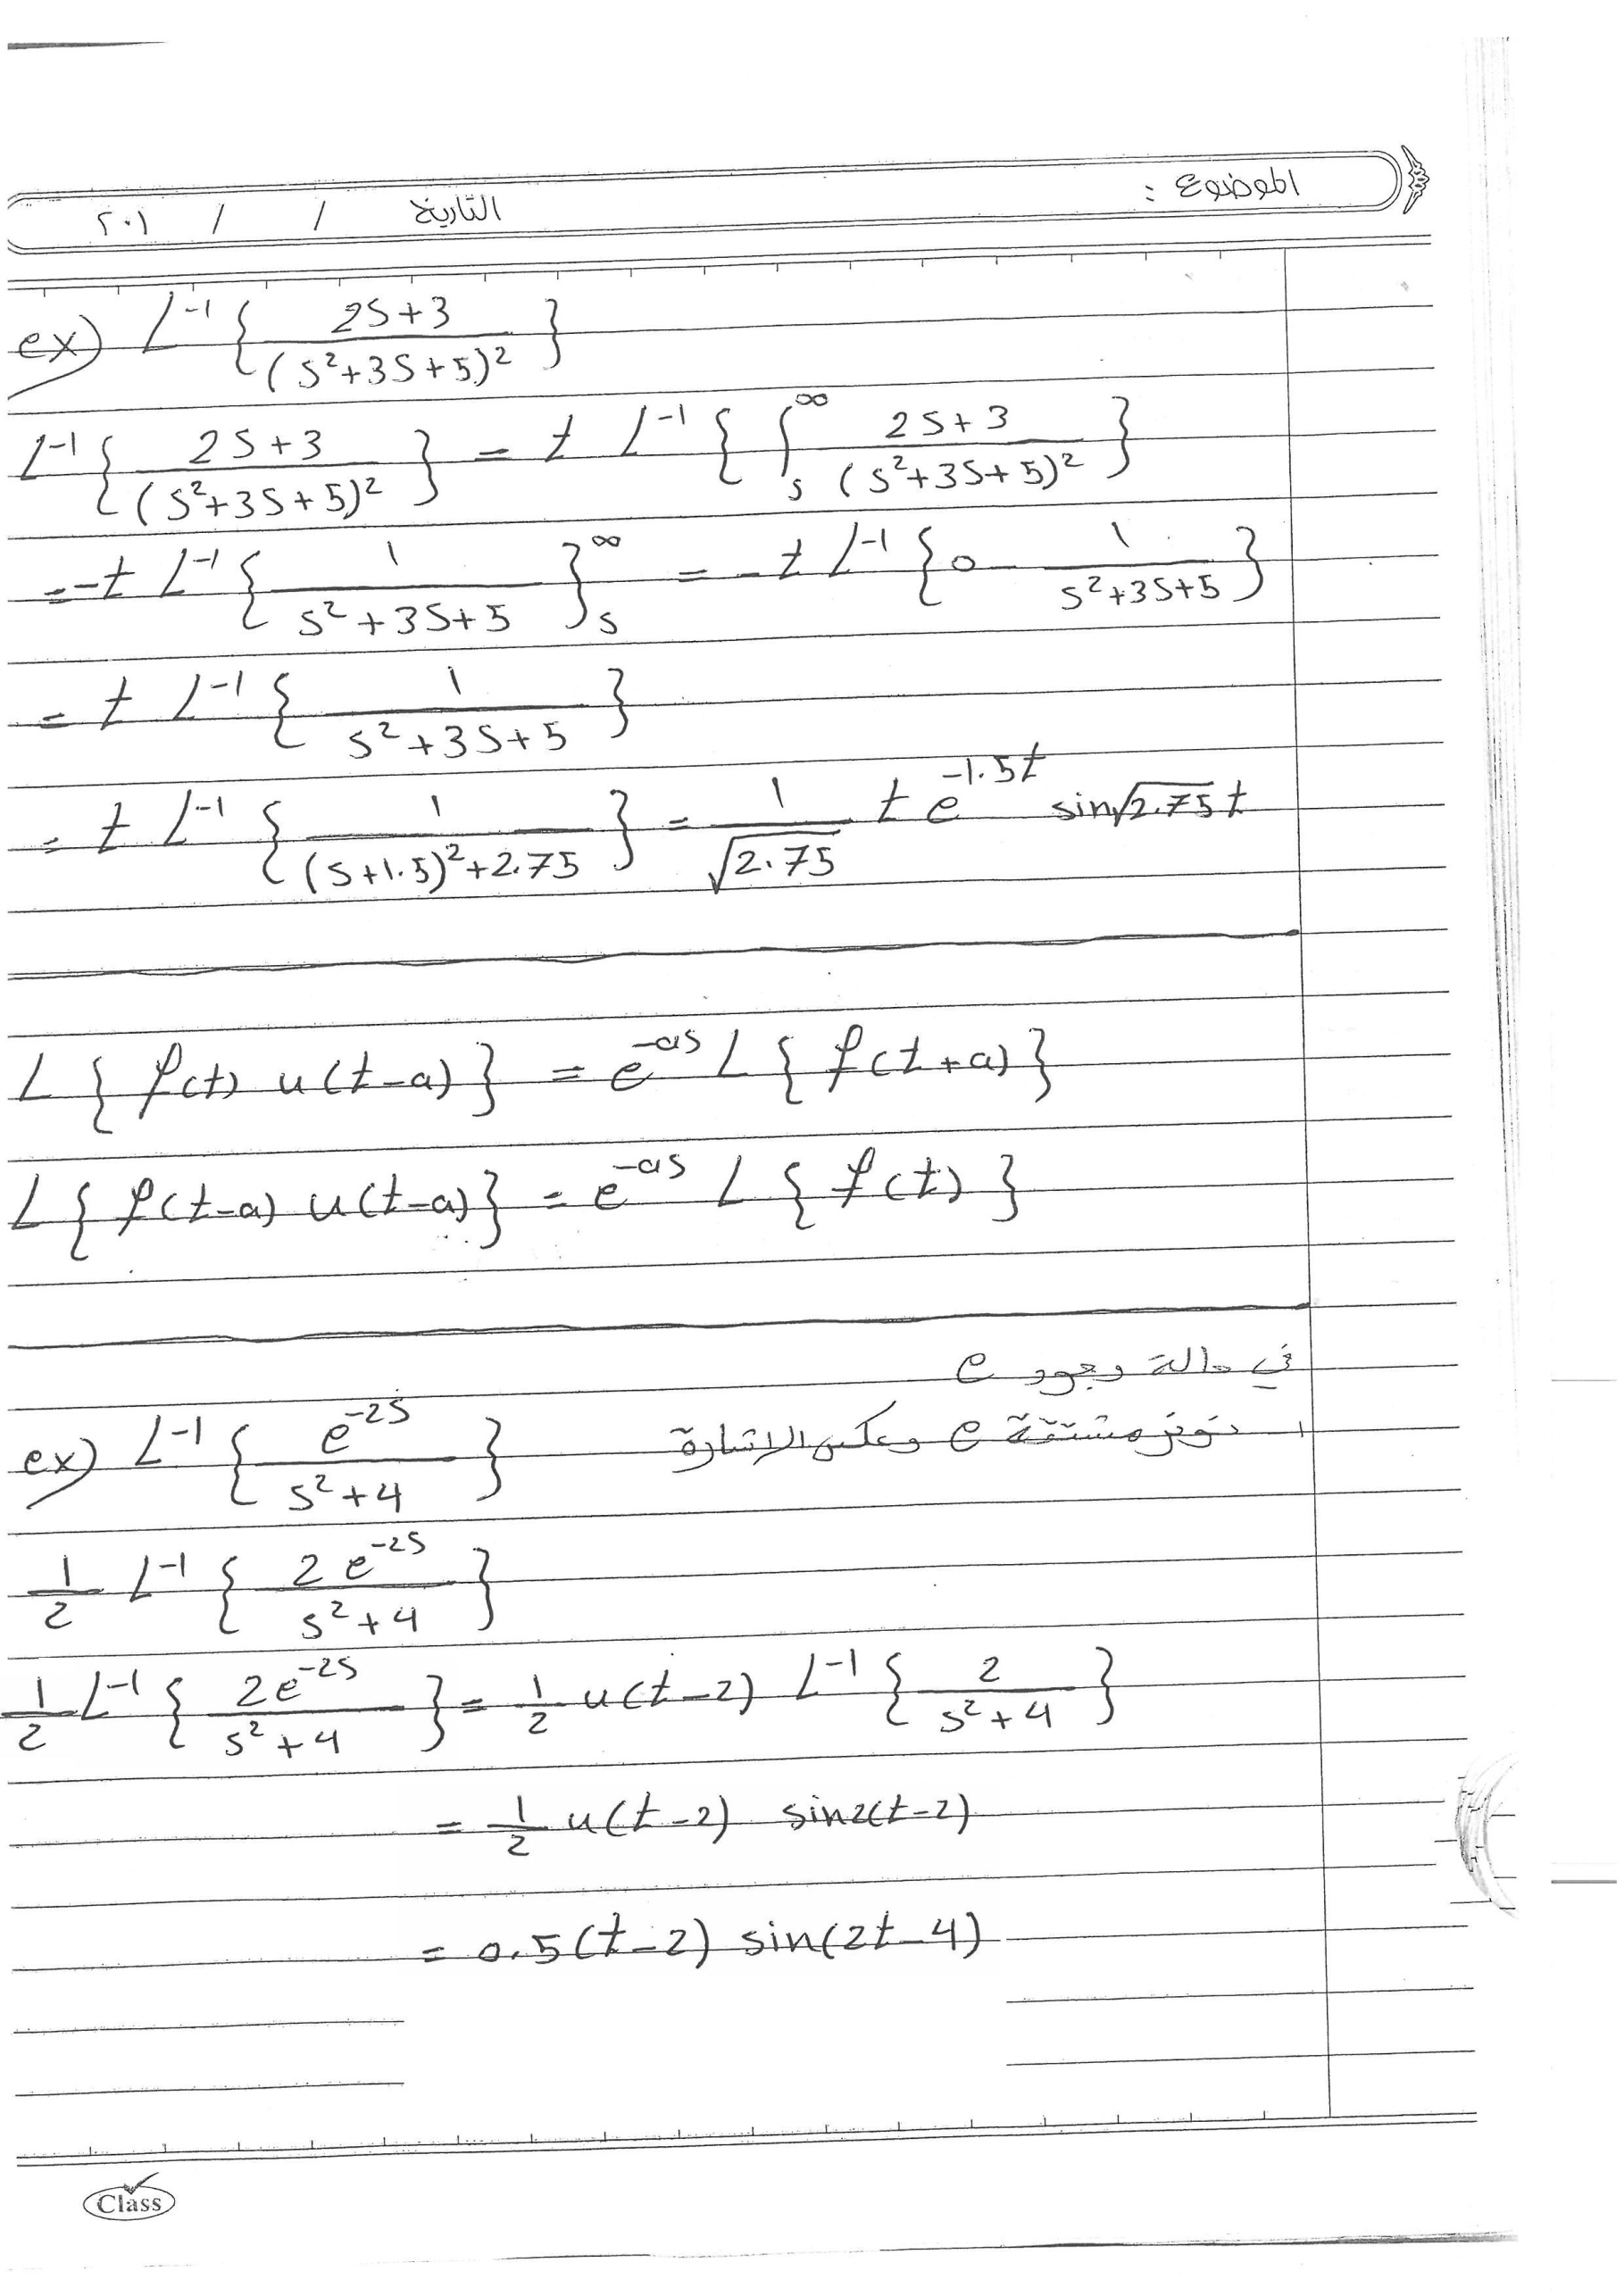 الموضوع :
التاريخ / / ٢٠١
ex) L⁻¹ { (2S+3) / (S²+3S+5)² }
L⁻¹ { (2S+3) / (S²+3S+5)² } = t L⁻¹ { ∫ₛ^∞ (2S+3) / (S²+3S+5)² }
= -t L⁻¹ { 1 / (S²+3S+5) }ₛ^∞ = -t L⁻¹ { 0 - 1 / (S²+3S+5) }
= t L⁻¹ { 1 / (S²+3S+5) }
= t L⁻¹ { 1 / ((S+1.5)²+2.75) } = 1/√2.75 t e^(-1.5t) sin√2.75 t
L { f(t) u(t-a) } = e^(-as) L { f(t+a) }
L { f(t-a) u(t-a) } = e^(-as) L { f(t) }
في حالة وجود e
مشتقة e وعكس الإشارة
ex) L⁻¹ { e^(-2S) / (S²+4) }
1/2 L⁻¹ { 2 e^(-2S) / (S²+4) }
1/2 L⁻¹ { 2e^(-2S) / (S²+4) } = 1/2 u(t-2) L⁻¹ { 2 / (S²+4) }
= 1/2 u(t-2) sin2(t-2)
= 0.5 (t-2) sin(2t-4)
Class